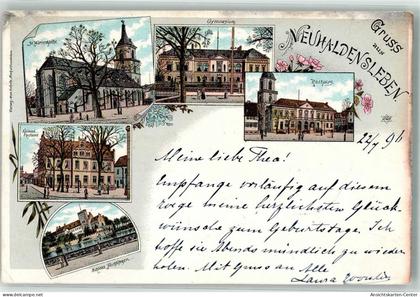 Gymnasium
Gruss
aus
NEUHALDENSLEBEN.
Rathaus
Schloss Hundisburg
22/7 96
Meine liebe Thea!
Empfange vorläufig auf diesem
Wege meine herzlichsten Glück-
wünsche zum Geburtstage. Ich
hoffe sie Abends mündlich zu wieder-
holen. Mit Gruss an Alle
Laura
Ansichtskarten-Center